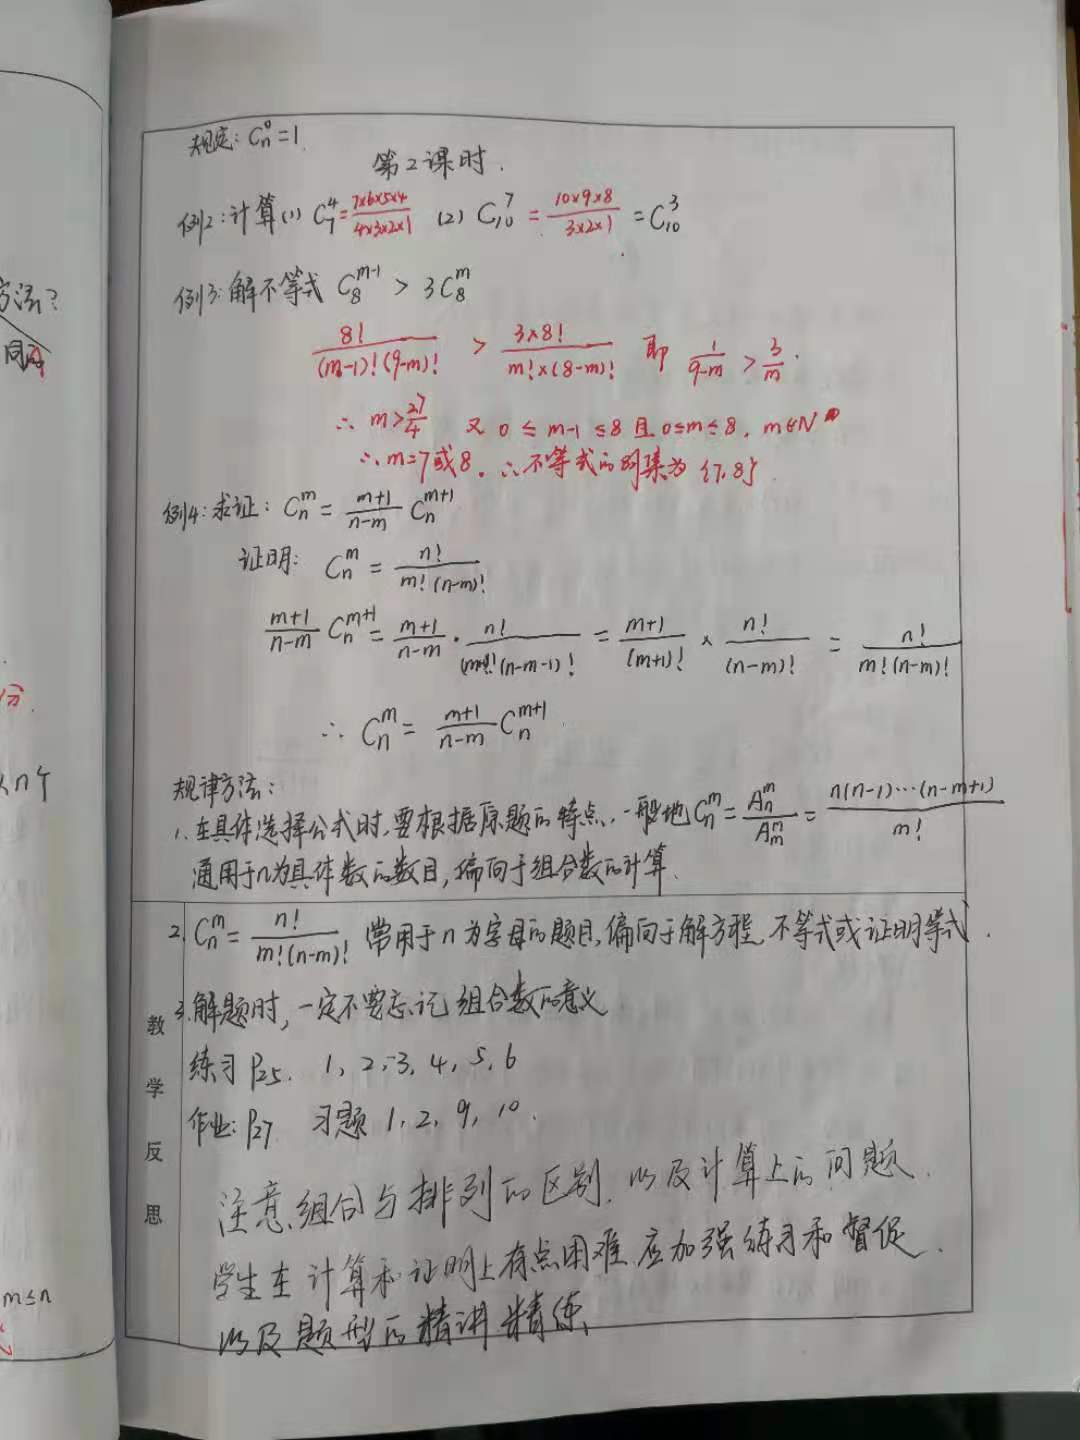 规定: C_n^0 = 1.
第2课时.
例2: 计算 (1) C_7^4 = 7×6×5×4/4×3×2×1 (2) C_10^7 = 10×9×8/3×2×1 = C_10^3
例3: 解不等式 C_8^{m-1} > 3C_8^m
8!/(m-1)!(9-m)! > 3×8!/m!×(8-m)! 即 1/9-m > 3/m.
∴ m > 27/4 又 0 ≤ m-1 ≤ 8 且 0≤m≤8, m∈N
∴ m=7或8. ∴不等式的解集为 {7,8}.
例4: 求证: C_n^m = m+1/n-m C_n^{m+1}
证明: C_n^m = n!/m!(n-m)!
m+1/n-m C_n^{m+1} = m+1/n-m · n!/(m+1)!(n-m-1)! = m+1/(m+1)! × n!/(n-m)! = n!/m!(n-m)!
∴ C_n^m = m+1/n-m C_n^{m+1}
规律方法:
1. 在具体选择公式时,要根据原题的特点,一般地 C_n^m = A_n^m/A_m^m = n(n-1)···(n-m+1)/m!
适用于n为具体数的数目,偏向于组合数的计算.
2. C_n^m = n!/m!(n-m)! 常用于n为字母的题目,偏向于解方程,不等式或证明等式.
3. 解题时,一定不要忘记组合数的意义
练习 P25. 1, 2, 3, 4, 5, 6
作业: P27 习题 1, 2, 9, 10.
教学反思
注意组合与排列的区别,以及计算上的问题.
学生在计算和证明上有点困难,应加强练习和督促.
以及题型的精讲精练.
方法?
分.
n个
m≤n